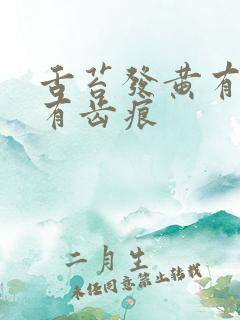 舌苔發黄有
有齿痕
二月生
未经同意禁止转载